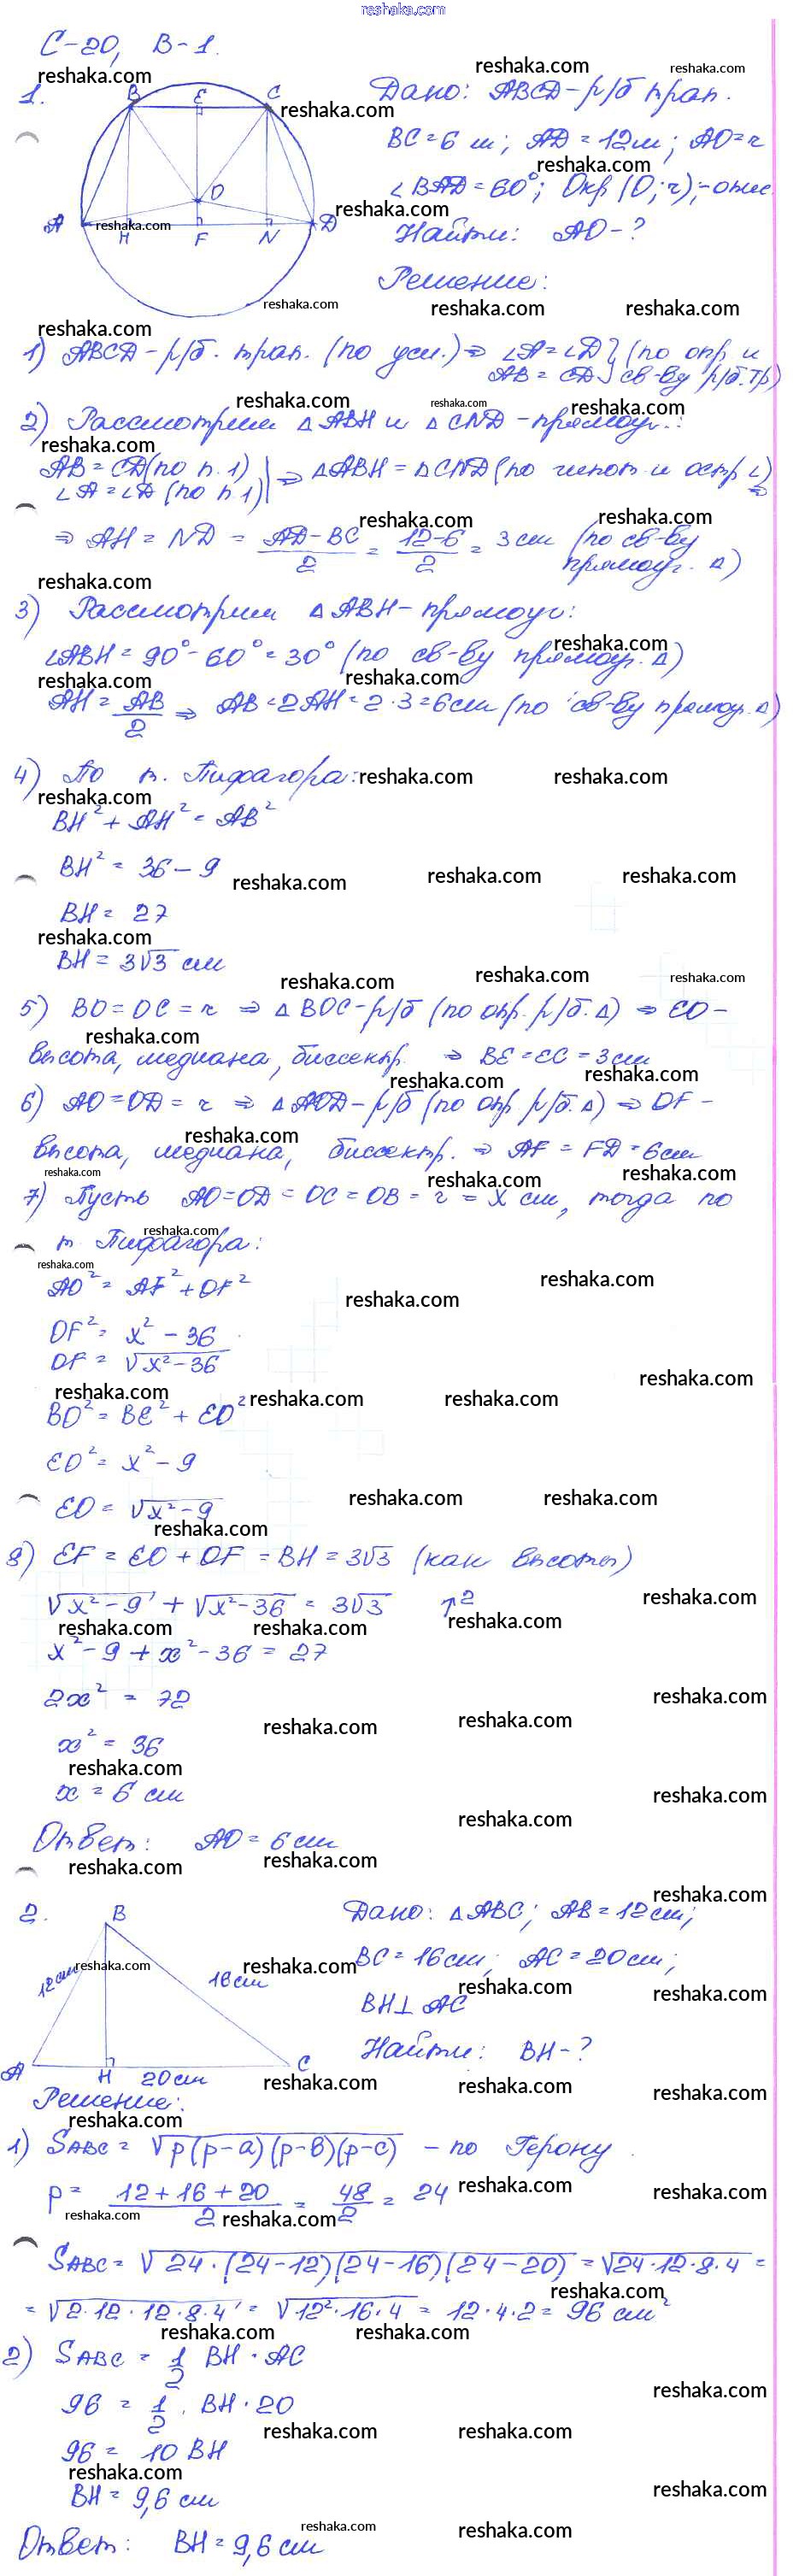 reshaka.com
С-20, В-1.
1.
B E C
O
A H F N D
Дано: ABCD - р/б трап.
BC = 6 см; AD = 12см; AO = r
∠BAD = 60°; Окр (O; r); - опис.
Найти: AO - ?
Решение:
1) ABCD - р/б. трап. (по усл.) ⇒ ∠A = ∠D } (по опр и
AB = CD } св-ву р/б. тр)
2) Рассмотрим △ABH и △CND - прямоуг.:
AB = CD (по п. 1)
∠A = ∠D (по п 1) | ⇒ △ABH = △CND (по гипот. и остр ∠) ⇒
⇒ AH = ND = (AD - BC)/2 = (12-6)/2 = 3 см (по св-ву
прямоуг. △)
3) Рассмотрим △ABH - прямоуг:
∠ABH = 90° - 60° = 30° (по св-ву прямоуг. △)
AH = AB/2 ⇒ AB = 2AH = 2·3 = 6см (по св-ву прямоуг. △)
4) По т. Пифагора:
BH² + AH² = AB²
BH² = 36 - 9
BH = 27
BH = 3√3 см
5) BO = OC = r ⇒ △BOC - р/б (по опр. р/б. △) ⇒ EO -
высота, медиана, биссектр. ⇒ BE = EC = 3см
6) AO = OD = r ⇒ △AOD - р/б (по опр р/б. △) ⇒ OF -
высота, медиана, биссектр. ⇒ AF = FD = 6см
7) Пусть AO = OD = OC = OB = r = x см, тогда по
т. Пифагора:
AO² = AF² + OF²
OF² = x² - 36
OF = √(x² - 36)
BO² = BE² + EO²
EO² = x² - 9
EO = √(x² - 9)
8) EF = EO + OF = BH = 3√3 (как высоты)
√(x² - 9) + √(x² - 36) = 3√3 ↑²
x² - 9 + x² - 36 = 27
2x² = 72
x² = 36
x = 6 см
Ответ: AO = 6 см
2.
B
12 см 16 см
A H 20 см C
Дано: △ABC; AB = 12 см;
BC = 16 см; AC = 20 см;
BH ⊥ AC
Найти: BH - ?
Решение:
1) SABC = √(p(p-a)(p-b)(p-c)) - по Герону.
p = (12 + 16 + 20)/2 = 48/2 = 24
SABC = √(24·(24-12)(24-16)(24-20)) = √(24·12·8·4) =
= √(2·12·12·8·4) = √(12²·16·4) = 12·4·2 = 96 см²
2) SABC = 1/2 BH · AC
96 = 1/2 · BH · 20
96 = 10 BH
BH = 9,6 см
Ответ: BH = 9,6 см